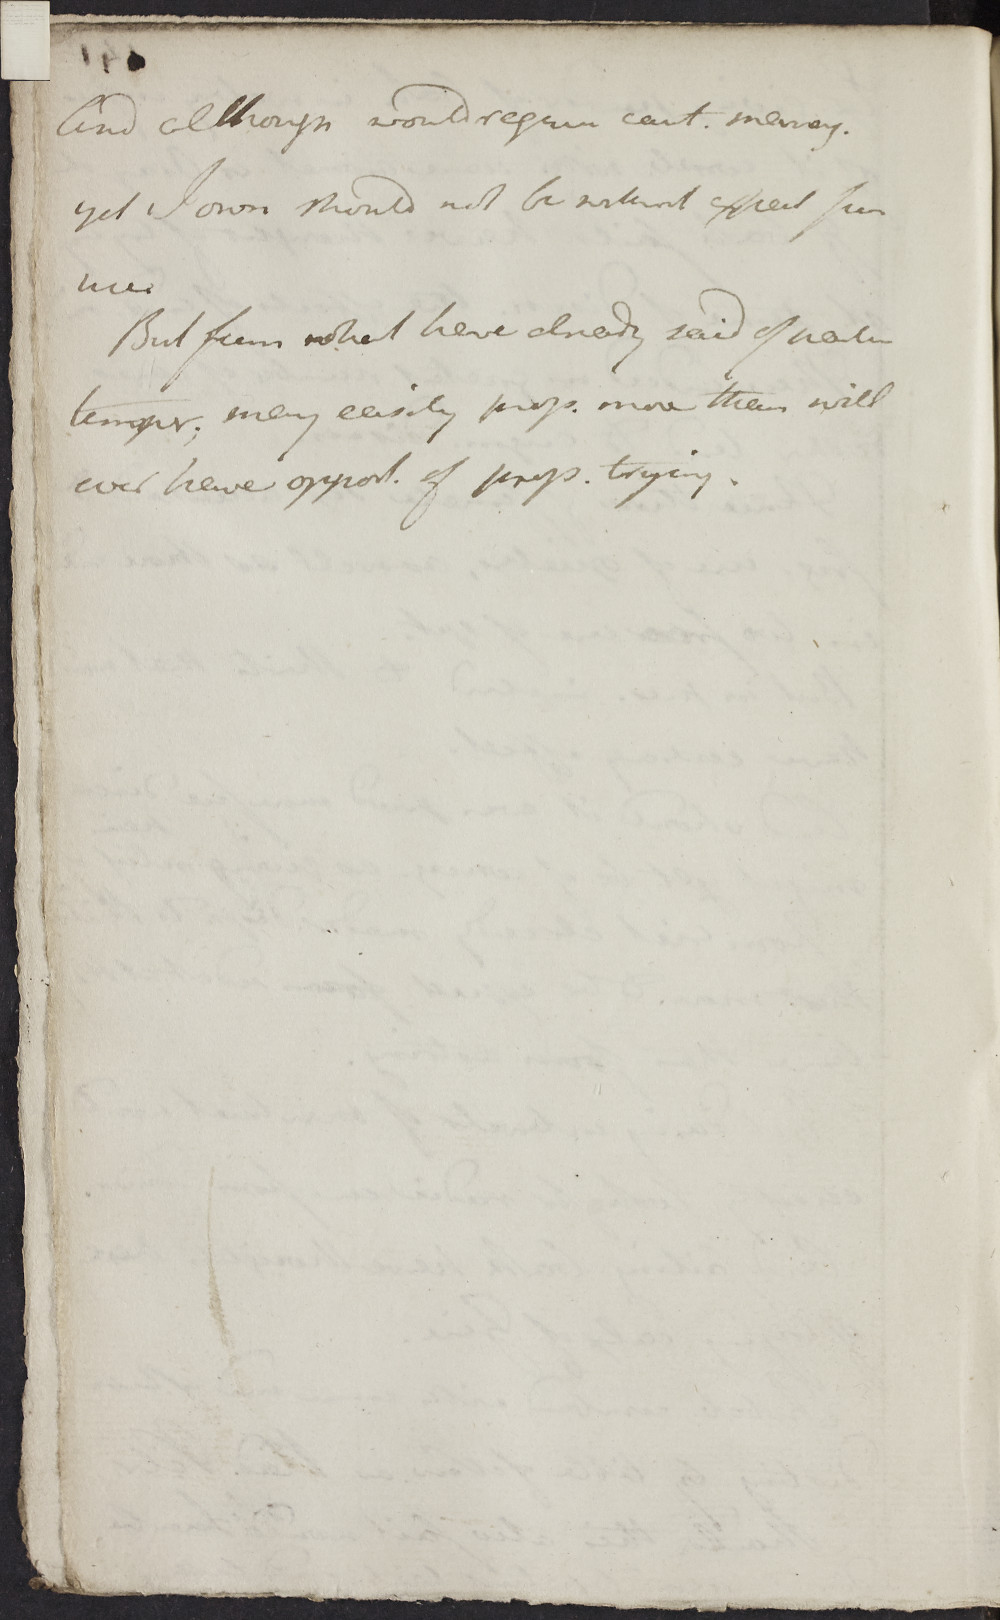 And although would require caut. manag.
yet I own should not be without effect from
use.
But from what have already said of
temper; may easily prop. more than will
ever have opport. of prop. trying.